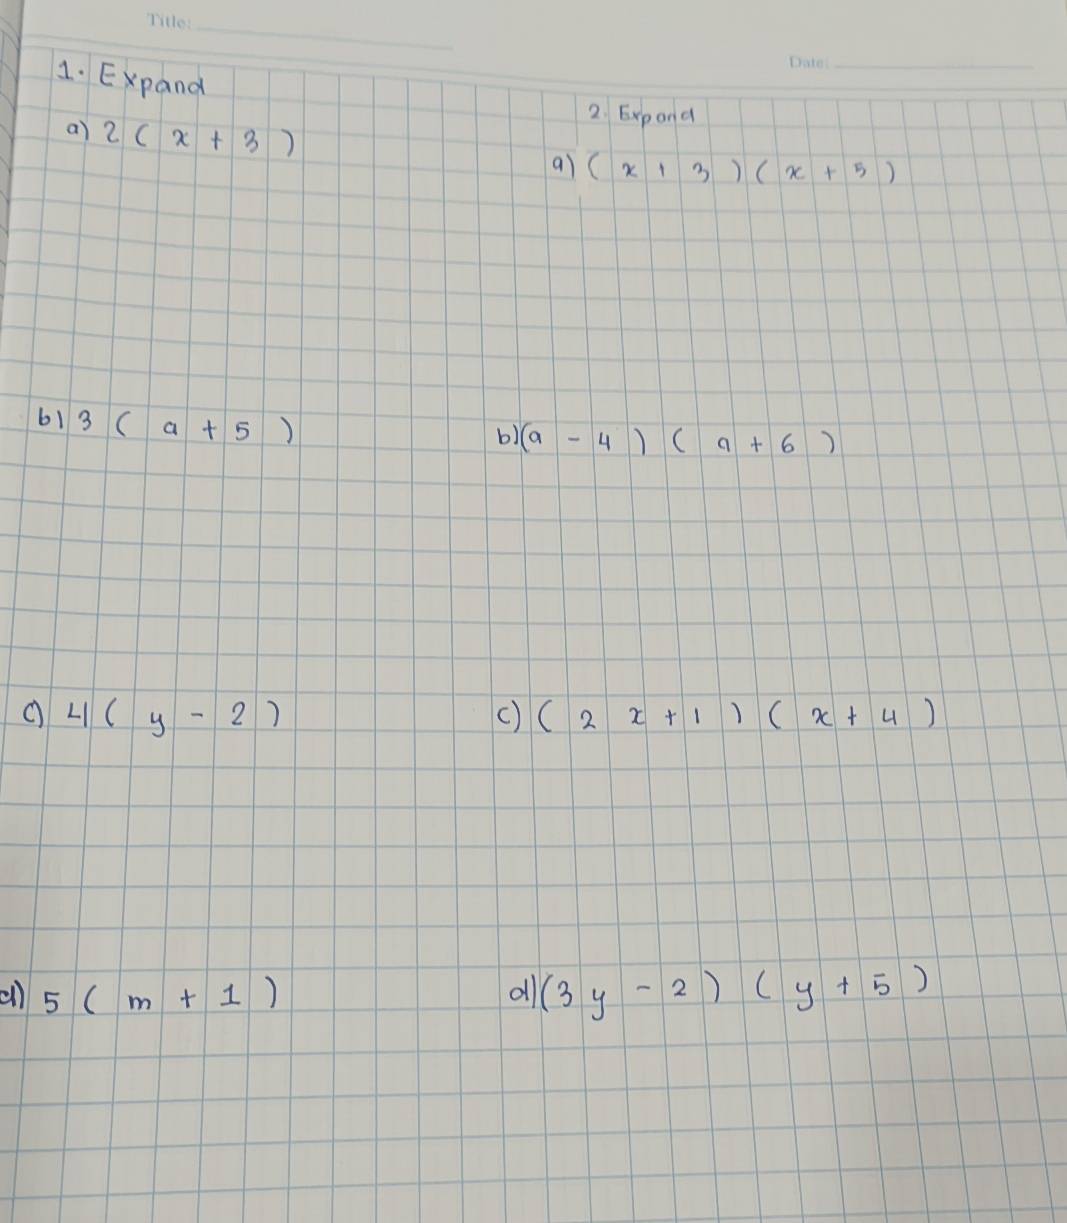 Title:
Date:
1. Expand
a) 2 ( x + 3 )
b) 3 ( a + 5 )
c) 4 ( y - 2 )
d) 5 ( m + 1 )
2. Expand
a) ( x + 3 ) ( x + 5 )
b) (a - 4 ) ( a + 6 )
c) ( 2 x + 1 ) ( x + 4 )
d) (3 y - 2 ) ( y + 5 )